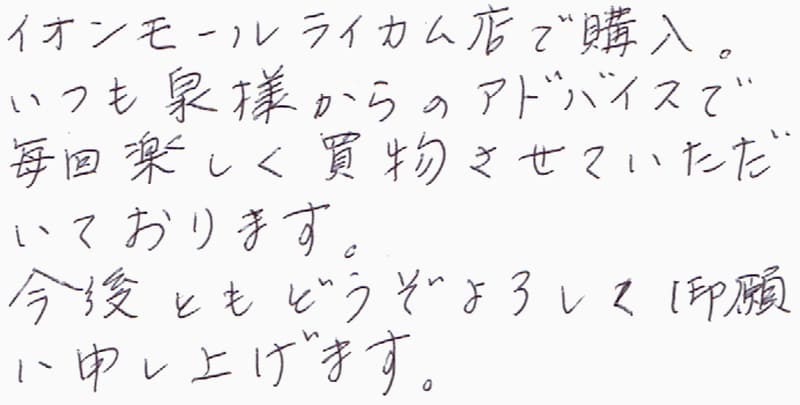 イオンモールライカム店で購入。
いつも泉様からのアドバイスで
毎回楽しく買物させていただ
いております。
今後ともどうぞよろしく御願
い申し上げます。